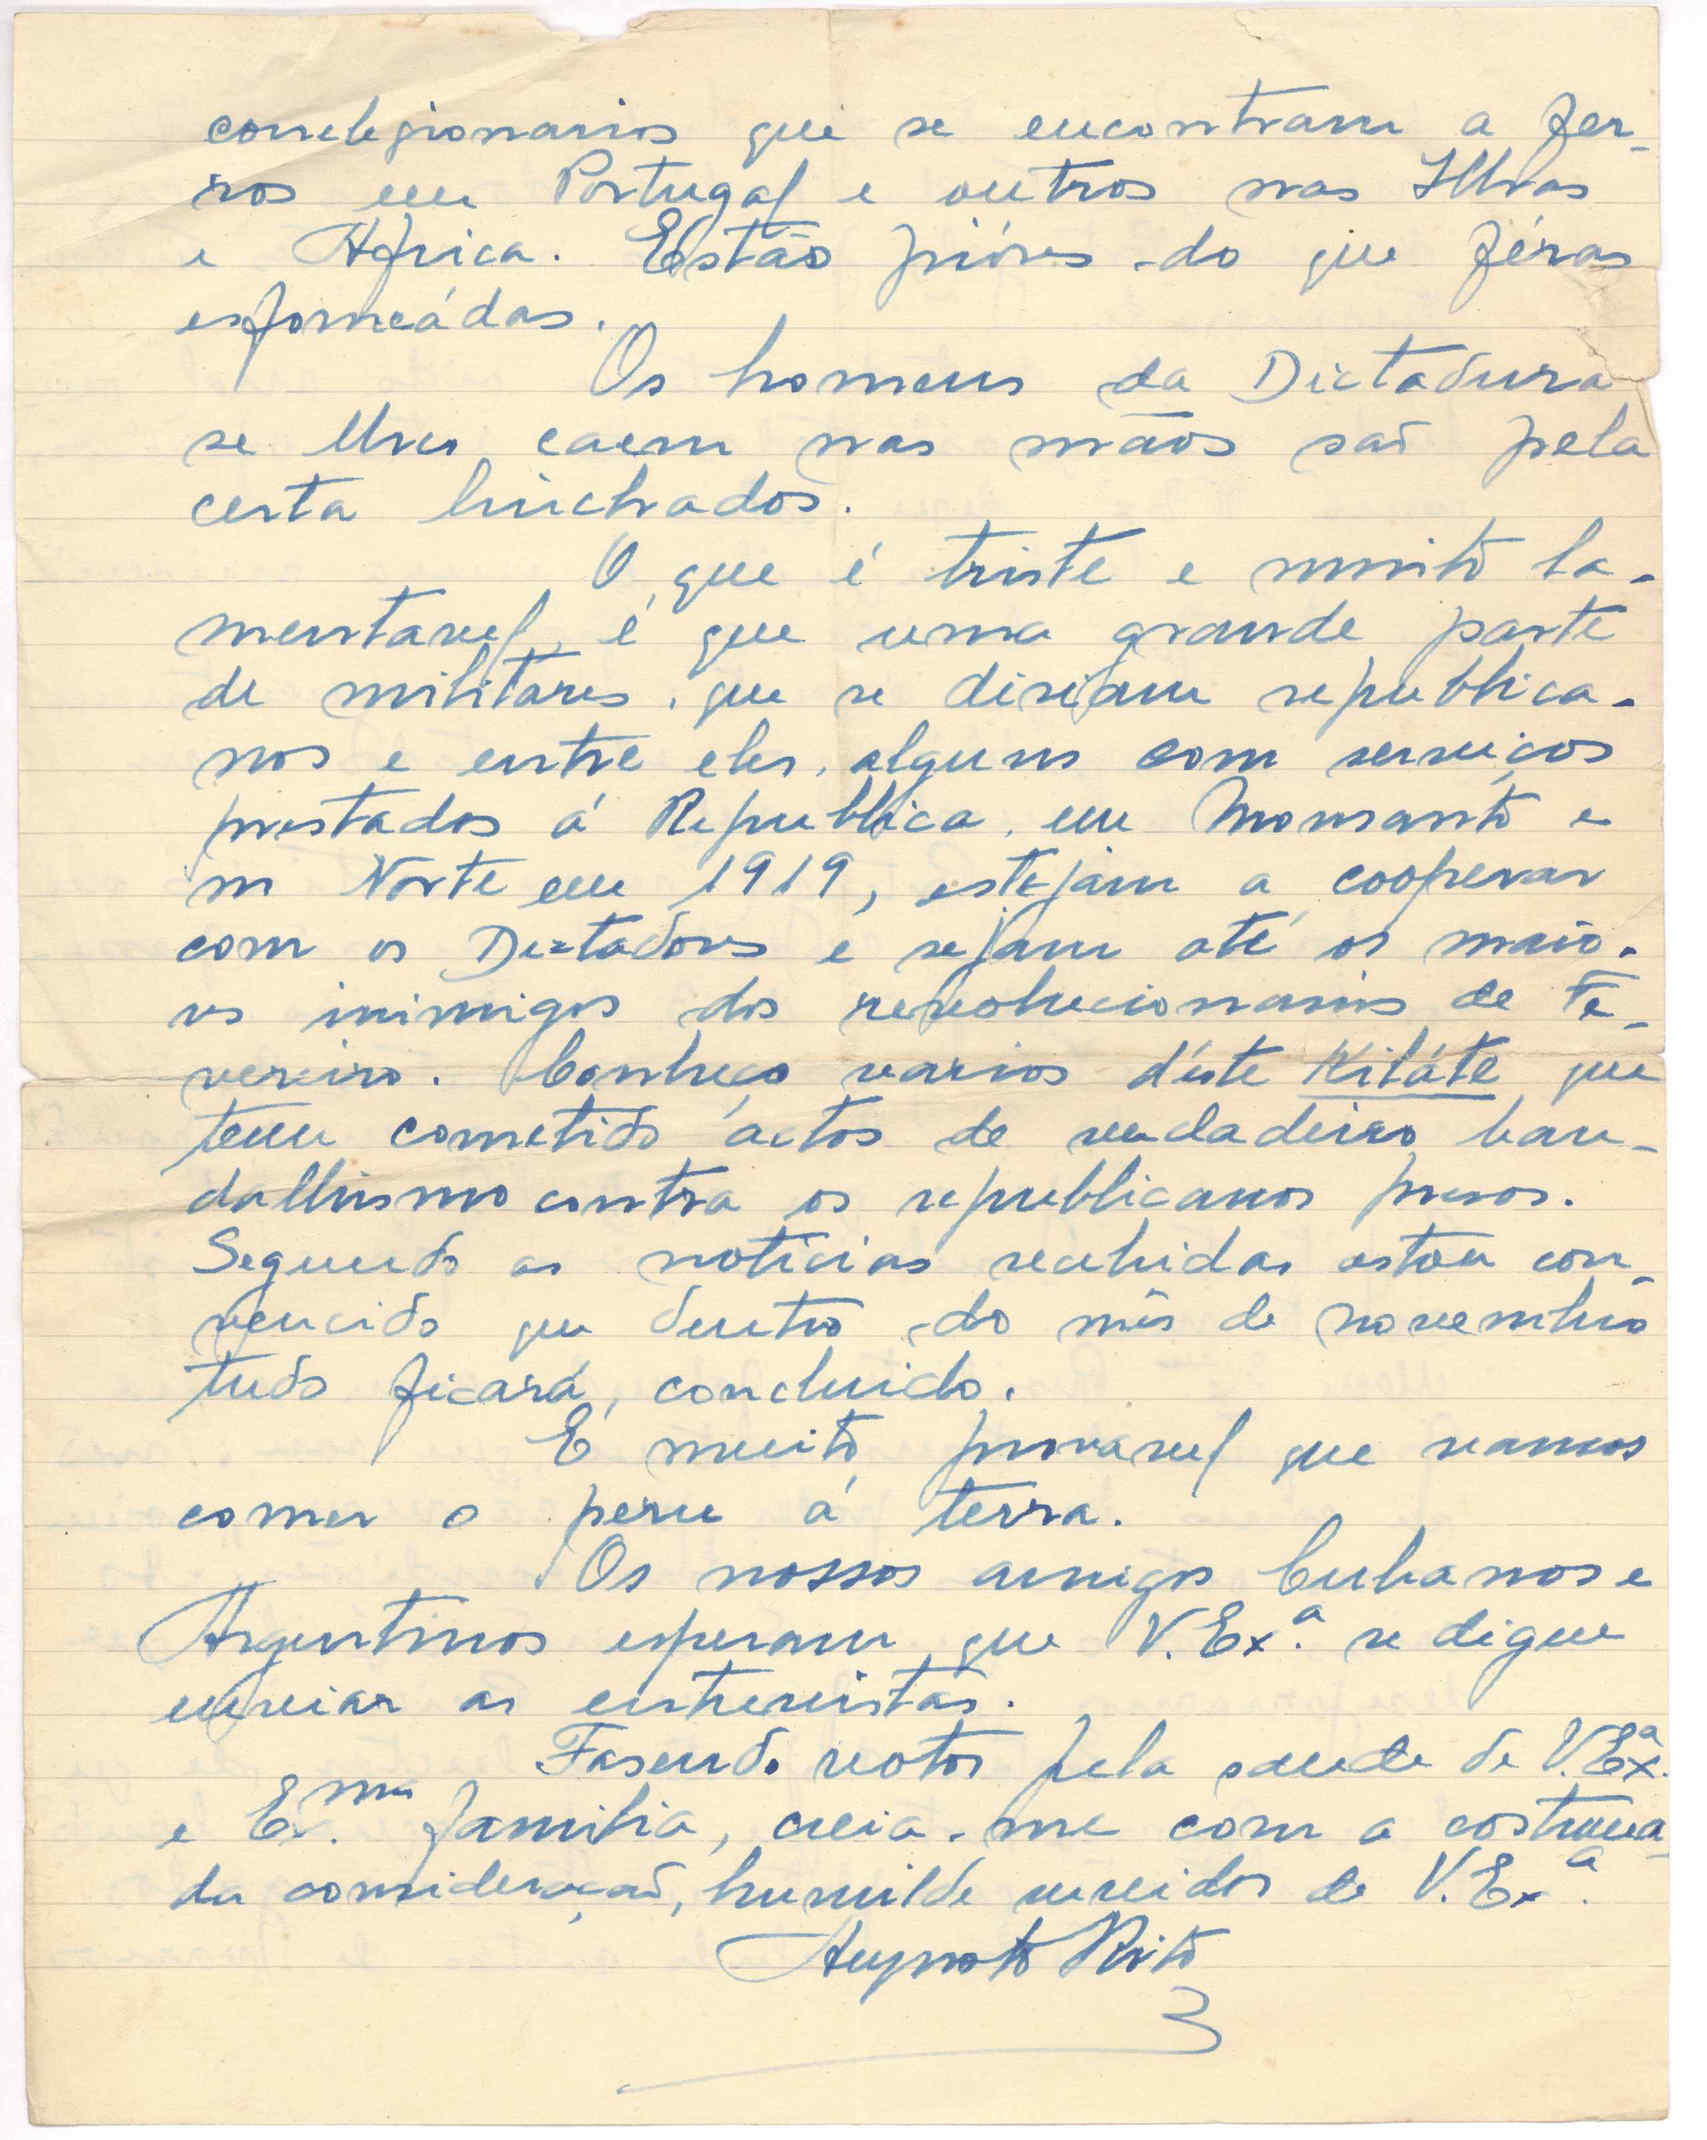 correlegionarios que se encontram a fer-
ros em Portugal e outros nas Ilhas
e Africa. Estão pióres do que féras
esfomeádas.
Os homens da Dictadura
se lhes caem nas mãos são pela
certa linchados.
O que é triste e muito la-
mentavel, é que uma grande parte
de militares, que se disiam republica-
nos e entre eles, alguns com serviços
prestados á Republica, em Monsanto e
no Norte em 1919, estejam a cooperar
com os Dictadores e sejam até os maio-
res inimigos dos revolucionarios de Fe-
vereiro. Conheço varios d'éste Kiláte que
teem cometido áctos de verdadeiro ban-
dalhismo contra os republicanos presos.
Segundo as noticias recebidas estou con-
vencido que dentro do mês de novembro
tudo ficará, concluido.
É muito provavel que vamos
comer o peru á terra.
Os nossos amigos Cubanos e
Argentinos esperam que V. Ex.ª se digne
enviar as entrevistas.
Fasendo votos pela saude de V. Exª.
e Ex.mª familia, creia-me com a costuma-
da consideração, humilde servidor de V. Exª.
Augusto